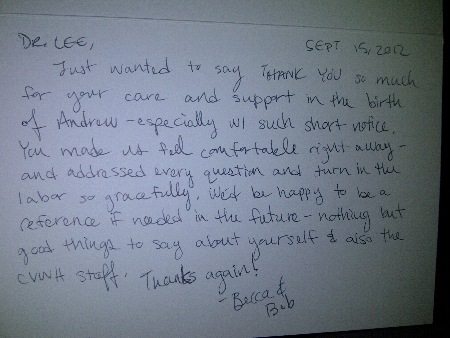 DR. LEE,
SEPT 15, 2012
Just wanted to say THANK YOU so much
for your care and support in the birth
of Andrew - especially w/ such short notice.
You made us feel comfortable right away -
and addressed every question and turn in the
labor so gracefully. We'd be happy to be a
reference if needed in the future - nothing but
good things to say about yourself & also the
CVWH staff. Thanks again!
- Becca &
Bob